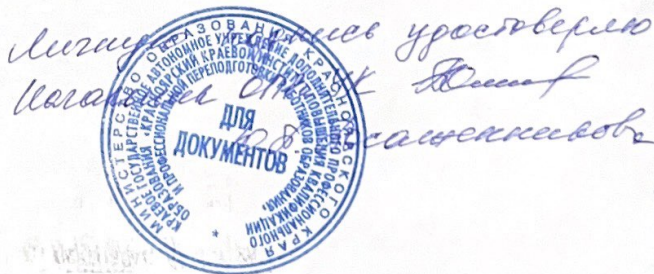 Личную подпись удостоверяю
Начальник ОК
МИНИСТЕРСТВО ОБРАЗОВАНИЯ КРАСНОЯРСКОГО КРАЯ
КРАЕВОЕ ГОСУДАРСТВЕННОЕ АВТОНОМНОЕ УЧРЕЖДЕНИЕ ДОПОЛНИТЕЛЬНОГО ПРОФЕССИОНАЛЬНОГО
ОБРАЗОВАНИЯ «КРАСНОЯРСКИЙ КРАЕВОЙ ИНСТИТУТ ПОВЫШЕНИЯ КВАЛИФИКАЦИИ
И ПРОФЕССИОНАЛЬНОЙ ПЕРЕПОДГОТОВКИ РАБОТНИКОВ ОБРАЗОВАНИЯ»
ДЛЯ
ДОКУМЕНТОВ